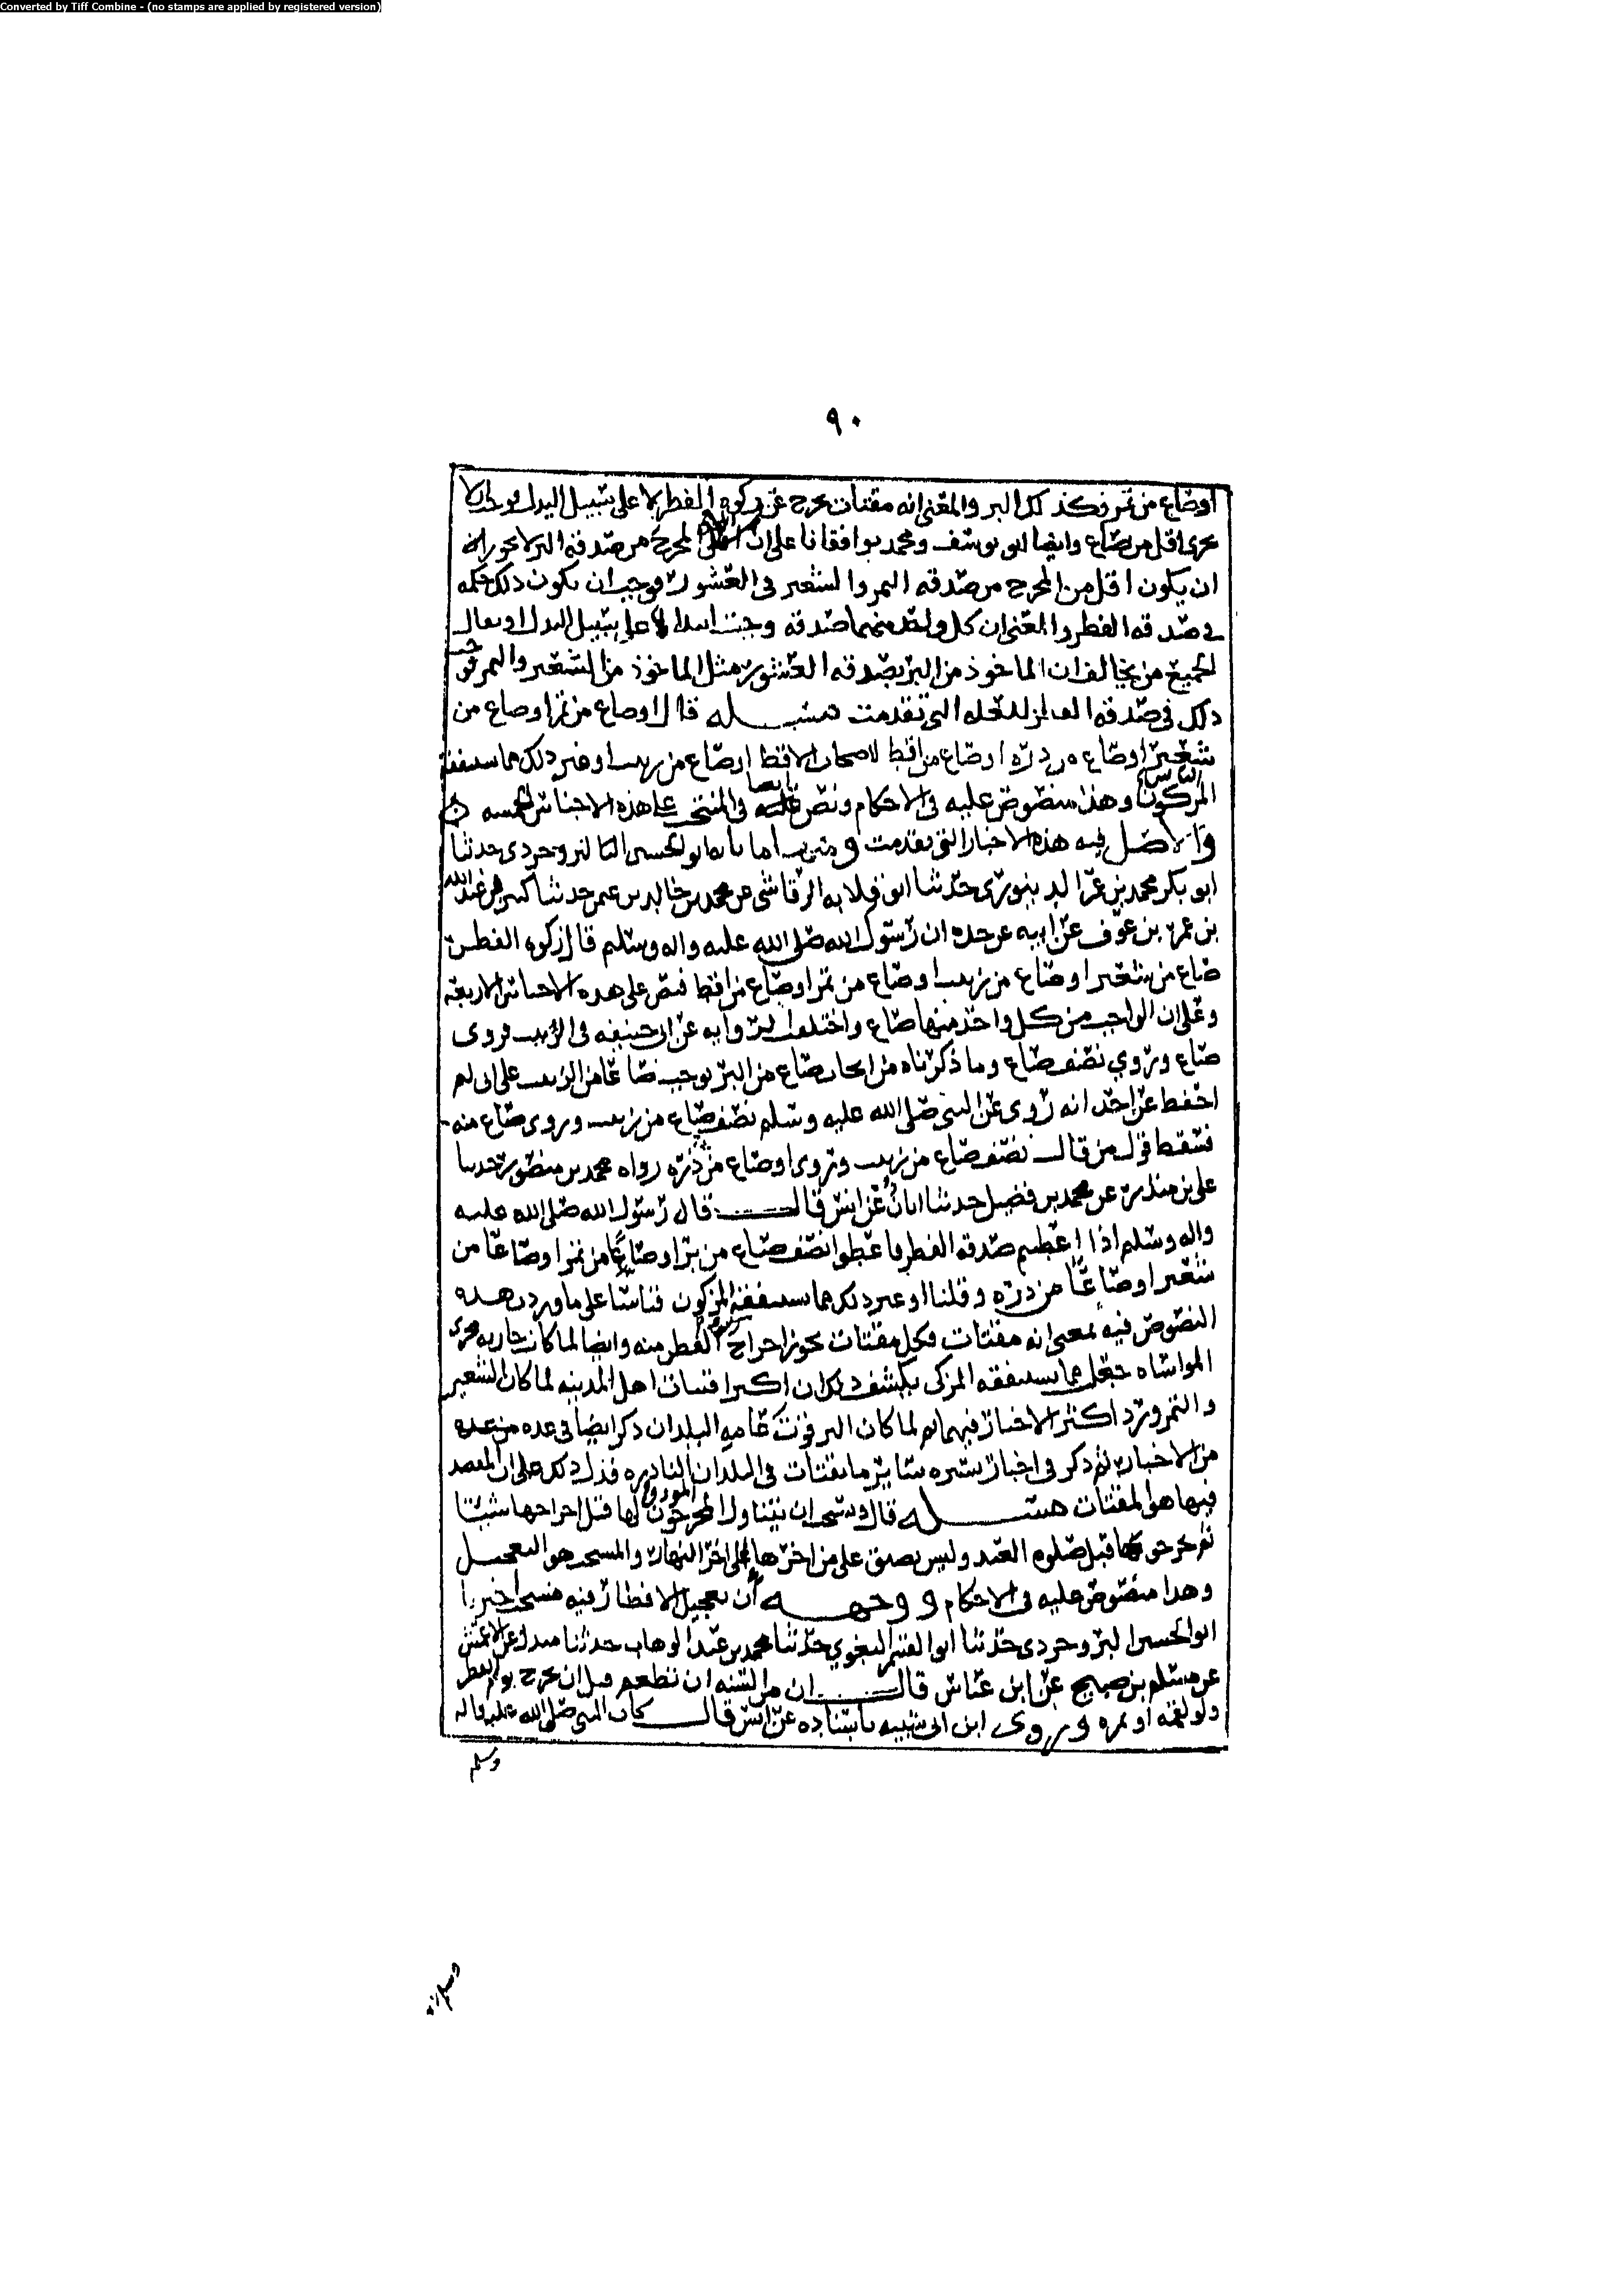 Converted by Tiff Combine - (no stamps are applied by registered version)
٩٠
او صاع من تمر فكذلك البر والمعنى انه مقتات يخرج عن زكوة الفطر لا على سبيل البدل فوجب ان لا
يجزي اقل من صاع وايضا ابو يوسف ومحمد يوافقانا على ان المخرج من صدقه البر لا يجوز
ان يكون اقل من المخرج من صدقه التمر والشعير في العشور فوجب ان يكون ذلك حكمه
في صدقه الفطر والمعنى ان كل واحد منهما صدقه وجبت ابتداء لا على سبيل البدل او يقال
لجميع من يخالف ان الماخوذ من البر بصدقه العشور مثل الماخوذ من الشعير والتمر فوجب
ذلك في صدقه الفطر للعله التي تقدمت مسئله قال او صاع من تمر او صاع من
شعير او صاع من ذره او صاع من اقط لاصحاب الاقط او صاع من زبيب او غير ذلك مما يستنفقه
المزكون وهذا منصوص عليه في الاحكام ونص ايضا في المنتخب على هذه الاجناس الخمسه
والاصل فيه هذه الاخبار التي تقدمت ومنها ما ابو الحسين البروجردي حدثنا
ابو بكر محمد بن عمر الدينوري حدثنا ابو قلابه الرقاشي عن محمد بن خالد بن عمر حدثنا كثير بن عبد الله
بن عمر بن عوف عن ابيه عن جده ان رسول الله صلى الله عليه واله وسلم قال زكوه الفطر
صاع من شعير او صاع من زبيب او صاع من تمر او صاع من اقط فنص على هذه الاجناس الاربعه
وعلى ان الواجب من كل واحد منها صاع واختلف الروايه عن ابي حنيفه في الزبيب فروي
صاع وروي نصف صاع وما ذكرناه من ايجاب صاع من البر يوجب صاعا من الزبيب على اني لم
احفظ عن احد انه روى عن النبي صلى الله عليه وسلم نصف صاع من زبيب وروى صاع منه
فسقط قول من قال نصف صاع من زبيب وروى او صاع من ذره رواه محمد بن منصور حدثنا
علي بن منذر عن محمد بن فضيل حدثنا ابان عن انس قال قال رسول الله صلى الله عليه
واله وسلم اذا اعطيتم صدقه الفطر فاعطوا نصف صاع من بر او صاعا من تمر او صاعا من
شعير او صاعا من ذره وقلنا او غير ذلك مما يستنفقه المزكون قياسا على ما ورد هذه
النصوص فيه بمعنى انه مقتات فكل مقتات يجوز اخراج الفطر منه وايضا لما كانت جاريه مجرى
المواساه جعل مما يستنفقه المزكي يكشف ذلك ان اكثر اقتيات اهل المدينه لما كان الشعير
والتمر ورد اكثر الاخبار فيهما ثم لما كان البر قوت عامه البلدان ذكر ايضا في عده
من الاخبار ثم ذكر في اخبار يسيره سائر ما يقتات في البلدان النادره فدل ذلك على ان المقصد
فيها هو المقتات مسئله قال ويستحب ان يتناول المخرجون لها قبل اخراجها شيئا
ثم يخرجونها قبل صلوه العيد وليس يضيق على من اخرها الى اخر النهار والمستحب هو التعجيل
وهذا منصوص عليه في الاحكام ووجهه ان تعجيل الافطار فيه مستحب اخبرنا
ابو الحسين البروجردي حدثنا ابو القسم البغوي حدثنا محمد بن عبد الوهاب حدثنا مندل عن الاعمش
عن مسلم بن صبيح عن ابن عباس قال ان من السنه ان تطعم قبل ان تخرج يوم الفطر
ولو لقمه او تمره وروى ابن ابي شيبه باسناده عن انس قال كان النبي صلى الله عليه واله
وسلم